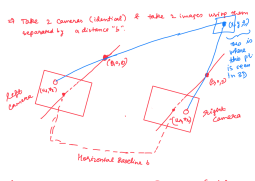 ⇒ Take 2 Cameras (identical) & take 2 images using them
separated by a distance "b".
(x,y,z)
this is
where
this pt
is seen
in 3D
(0,0,0)
(b,0,0)
Left
Camera
(u,v)
Right
Camera
Horizontal Baseline b